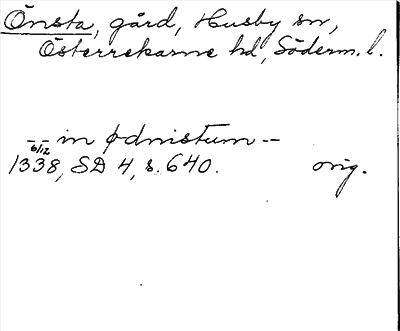 Önsta, gård, Husby sn,
Österrekarne hd, Söderm. l.
-- in ødnistum --
6/12
1338, SD 4, s. 640. orig.